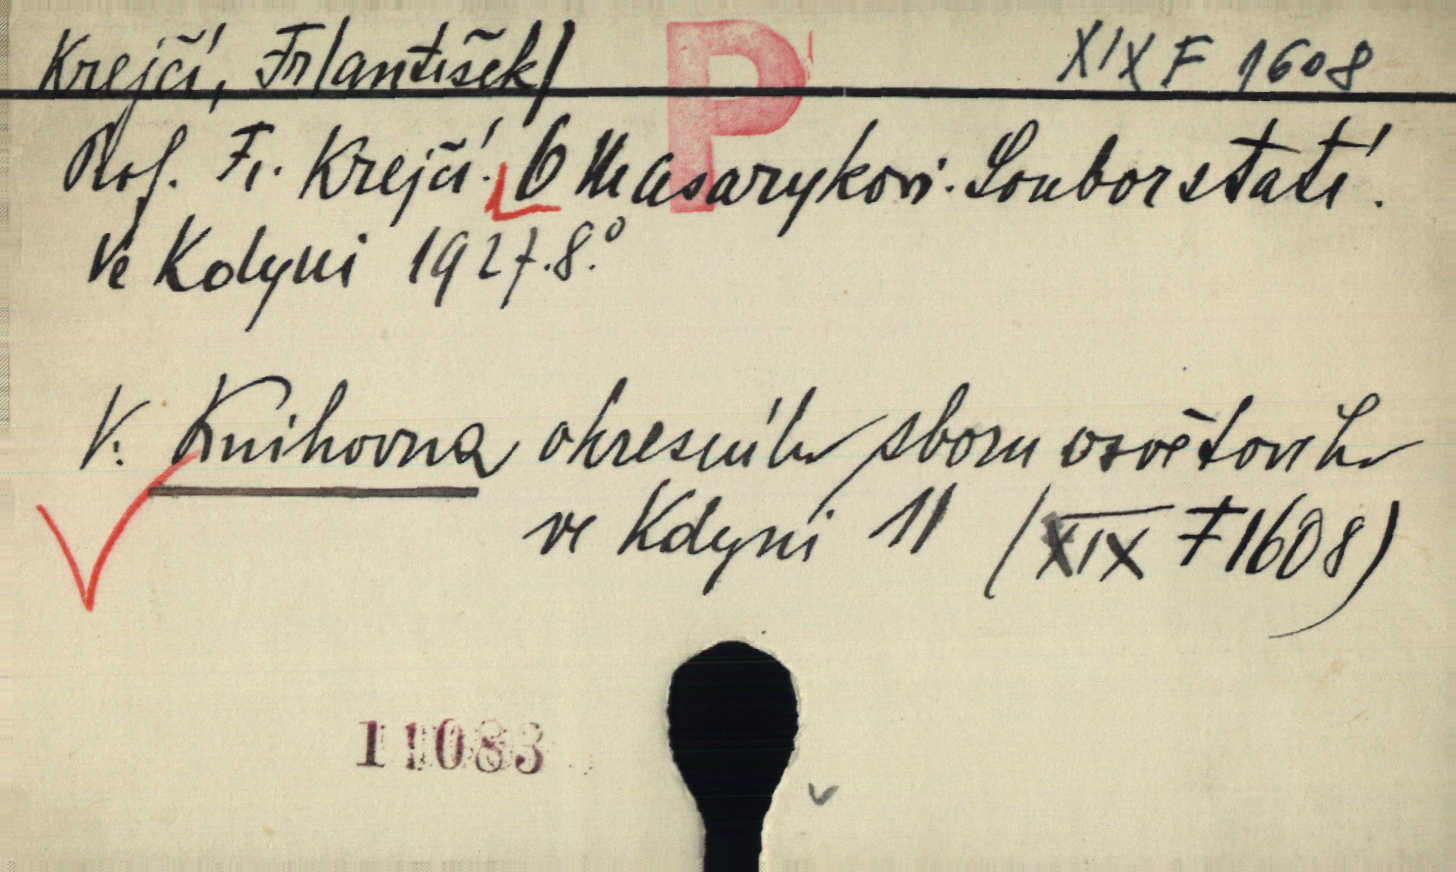 Krejčí, Fr/antišek/ XIX F 1608
P
Prof. Fr. Krejčí: O Masarykovi. Soubor statí.
Ve Kdyni 1927. 8.°
V: Knihovna okresního sboru osvětového
ve Kdyni 11 (XIX F 1608)
11083